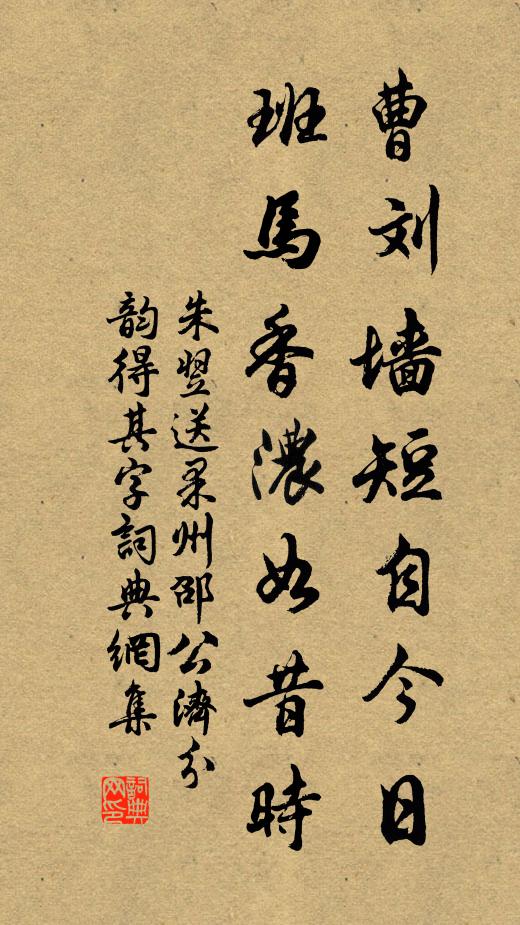 曹刘墙短自今日
班馬香濃如昔時
朱翌送果州邵公濟分
韵得其字詞典網集
詞典網印